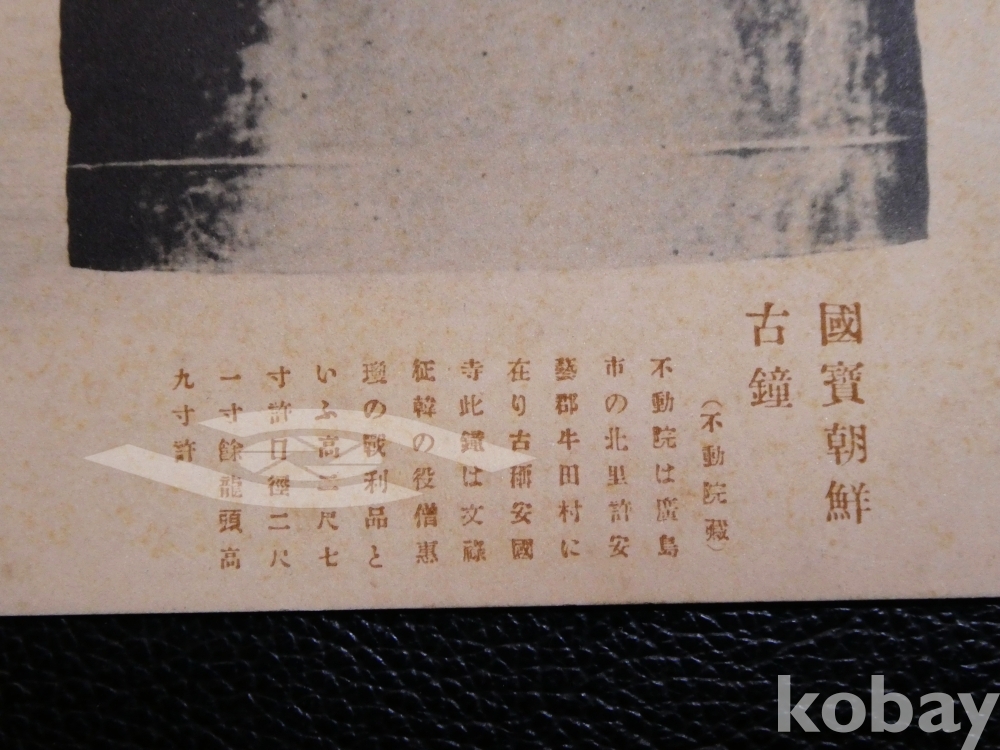 國寶朝鮮
古鐘
(不動院藏)
不動院は廣島
市の北里許安
藝郡牛田村に
在り古稱安國
寺此鐘は文祿
征韓の役僧惠
瓊の戰利品と
いふ高三尺七
寸許口徑二尺
一寸餘龍頭高
九寸許
kobay